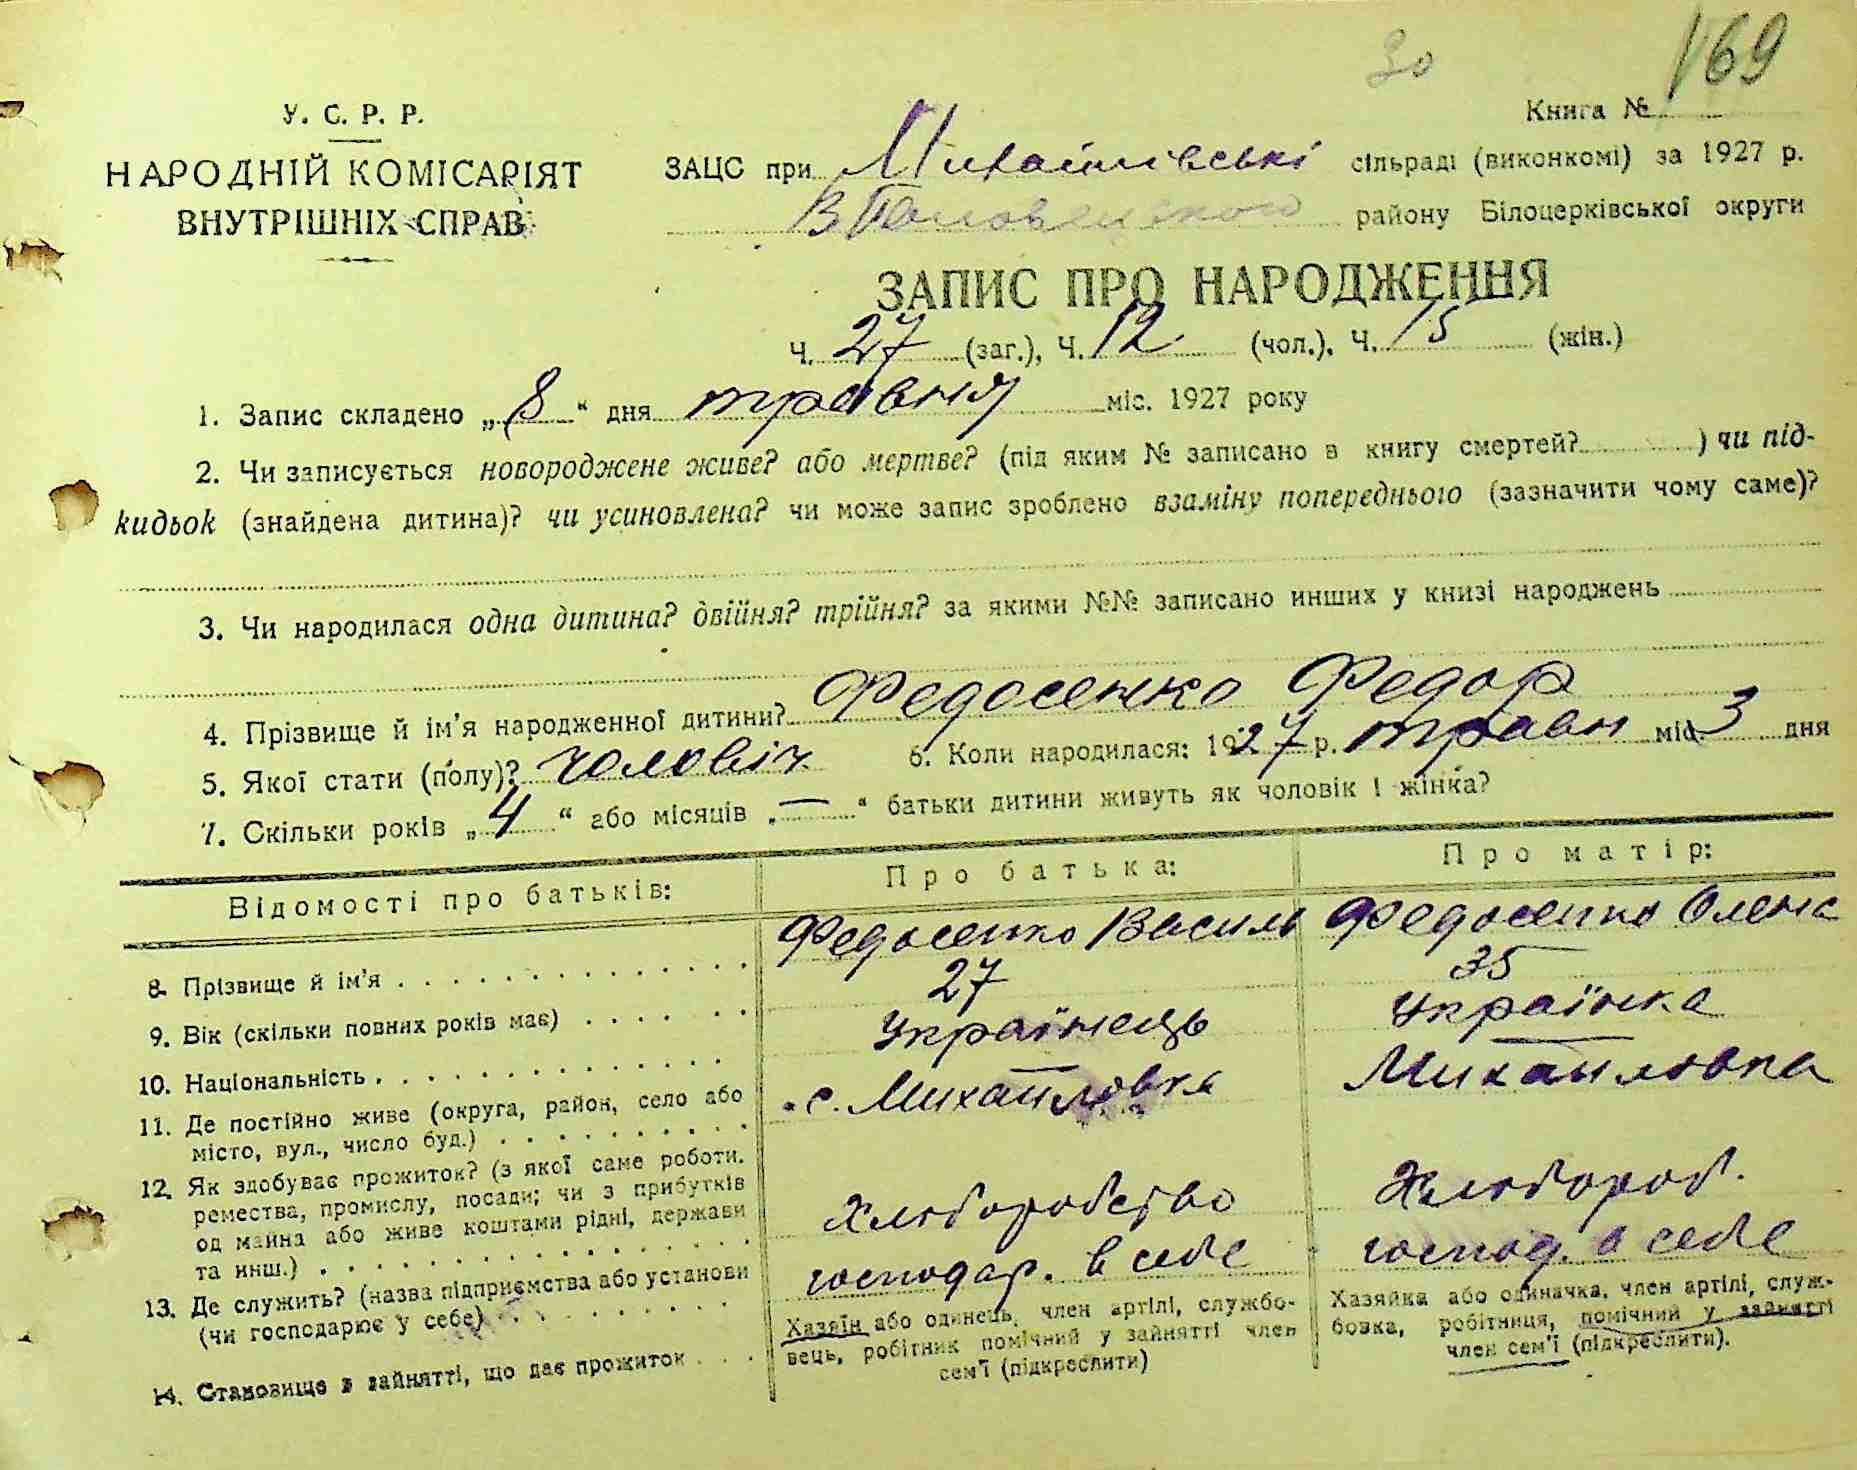 30
169
У. С. Р. Р.
НАРОДНІЙ КОМІСАРІЯТ
ВНУТРІШНІХ СПРАВ
Книга №
ЗАЦС при Михайлівські сільраді (виконкомі) за 1927 р.
району Білоцерківської округи
ЗАПИС ПРО НАРОДЖЕННЯ
Ч. 27 (заг.), Ч. 12 (чол.), Ч. 15 (жін.)
1. Запис складено „8“ дня травня міс. 1927 року
2. Чи записується новороджене живе? або мертве? (під яким № записано в книгу смертей? ) чи під-
кидьок (знайдена дитина)? чи усиновлена? чи може запис зроблено взаміну попереднього (зазначити чому саме)?
3. Чи народилася одна дитина? двійня? трійня? за якими №№ записано инших у книзі народжень
4. Прізвище й ім'я народженної дитини? Федосенко Федор
5. Якої стати (полу)? чоловіч 6. Коли народилася: 1927 р. травн міс 3 дня
7. Скільки років „4“ або місяців „—“ батьки дитини живуть як чоловік і жінка?
Відомості про батьків: Про батька: Про матір:
8. Прізвище й ім'я Федосенко Василь Федосенко Олена
9. Вік (скільки повних років має) 27 35
10. Національність Українець Українка
11. Де постійно живе (округа, район, село або
місто, вул., число буд.) с. Михайловка Михайловка
12. Як здобуває прожиток? (з якої саме роботи,
ремества, промислу, посади; чи з прибутків
од майна або живе коштами рідні, держави
та инш.) Хлюборобство Хлюбороб.
13. Де служить? (назва підприємства або установи
(чи господарює у себе) господар. в себе господ. в себе
14. Становище в зайнятті, що дає прожиток
Хазяїн або одинець, член артілі, службо-
вець, робітник помічний у зайнятті член
сем'ї (підкреслити)
Хазяйка або одиначка, член артілі, служ-
бовка, робітниця, помічний у зайнятті
член сем'ї (підкреслити).